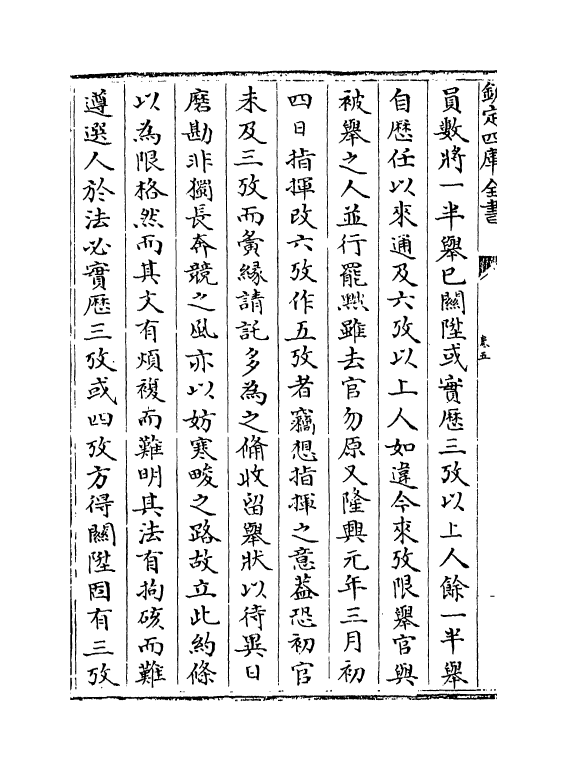 欽定四庫全書
卷五
員數將一半舉已關陞或實歷三攷以上人餘一半舉
自歷任以來通及六攷以上人如違今來攷限舉官與
被舉之人並行罷黜雖去官勿原又隆興元年三月初
四日指揮改六攷作五攷者竊想指揮之意葢恐初官
未及三攷而夤緣請託多為之備收留舉狀以待異日
磨勘非獨長奔競之風亦以妨寒畯之路故立此約條
以為限格然而其文有煩複而難明其法有拘礙而難
遵選人於法必實歷三攷或四攷方得關陞固有三攷